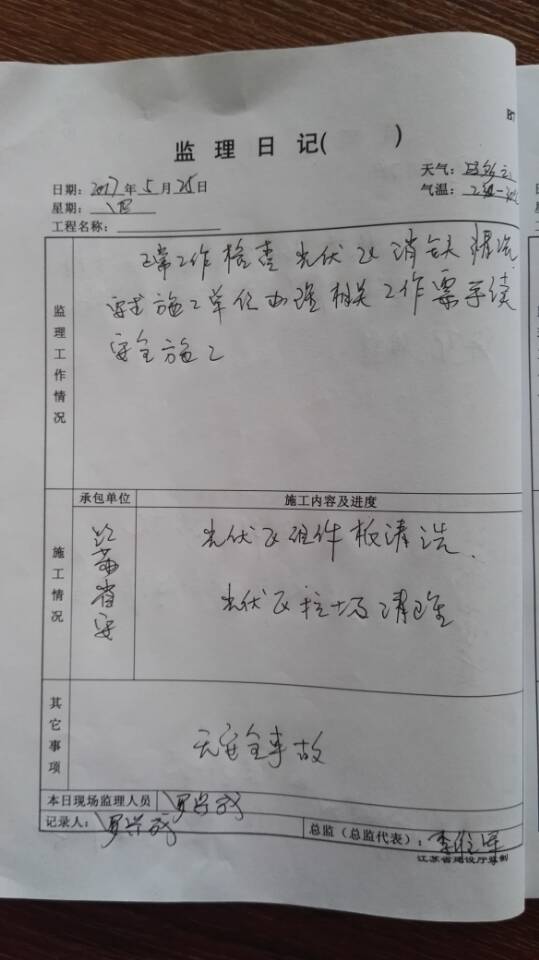 监理日记( )
日期：2017年5月25日
天气：多云
星期：四
气温：
工程名称：
监理工作情况
正常工作检查光伏区消缺情况
要求施工单位办理相关工作票手续
安全施工
施工情况
承包单位
施工内容及进度
江苏省安
光伏区组件板清洗.
光伏区场清理
其它事项
无安全事故
本日现场监理人员
罗兴
记录人：罗兴
总监（总监代表）：李
江苏省建设厅监制